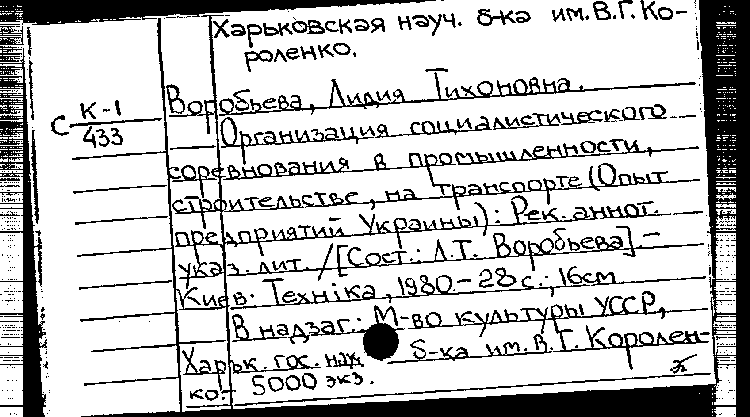 Харьковская науч. б-ка им. В.Г. Ко-
роленко.
С К-1
433
Воробьева, Лидия Тихоновна.
Организация социалистического
соревнования в промышленности,
строительстве, на транспорте (Опыт
предприятий Украины): Рек. аннот.
указ. лит. / [Сост.: Л.Т. Воробьева]. –
Киев: Технiка, 1980. – 28 с.; 16 см
В надзаг.: М-во культуры УССР,
Харьк. гос. науч. б-ка им. В.Г. Королен-
ко. 5000 экз.